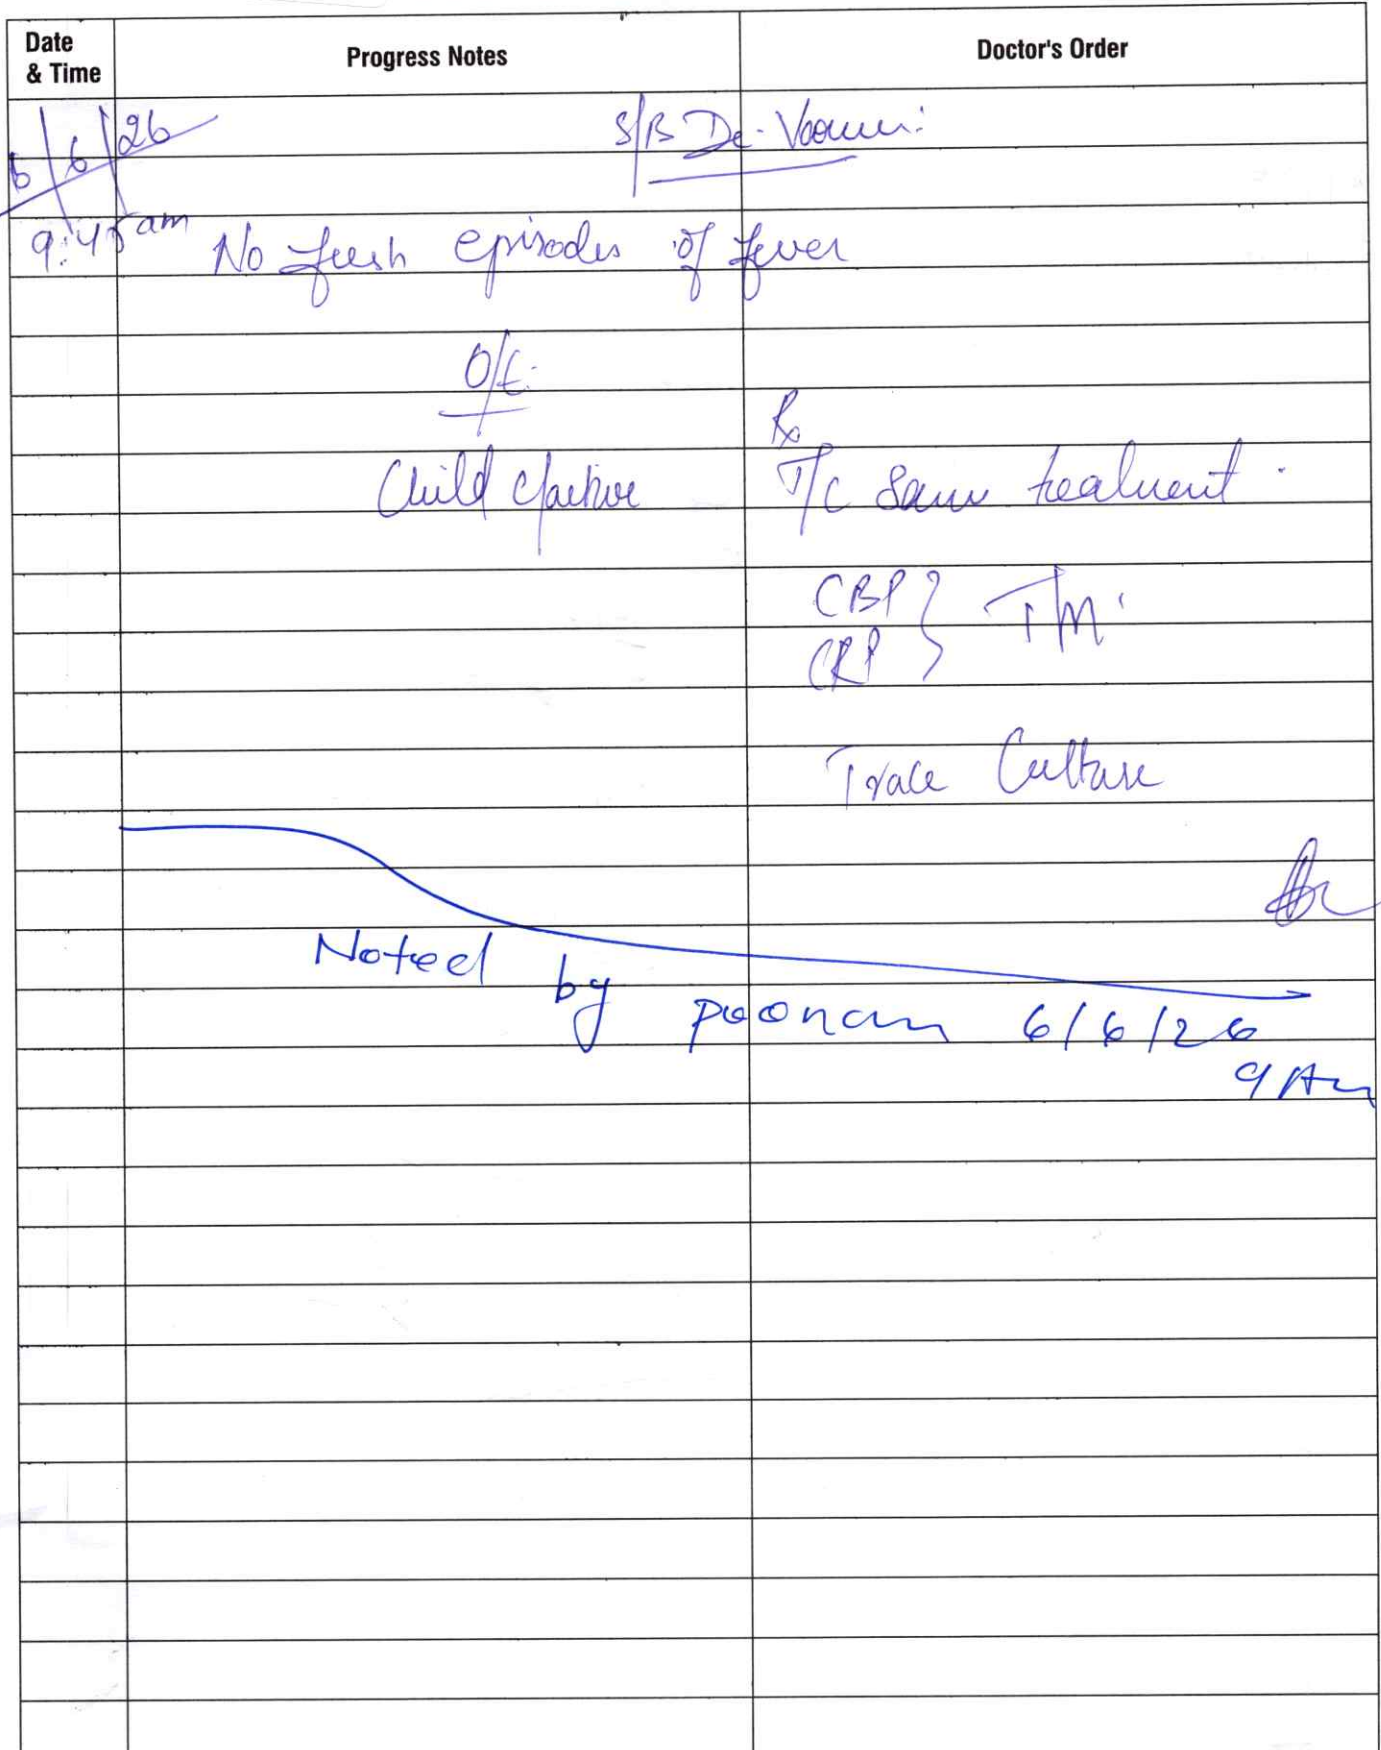 Date & Time
Progress Notes
Doctor's Order
6/6/26
S/B Dr.
9:45 am
No fresh episodes of fever
O/E.
Rx
Child active
T/C Same treatment.
CBP
CRP } T/M.
Trace Culture
Noted by poonam 6/6/26
9 Am